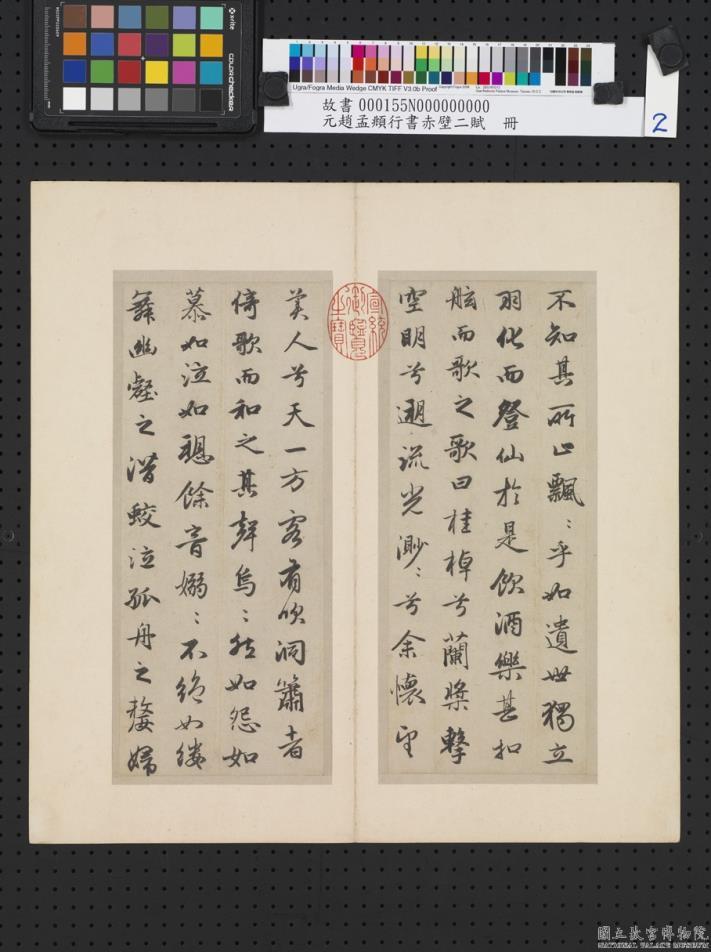 x-rite
colorchecker
Ugra/Fogra Media Wedge CMYK TIFF V3.0b Proof
故書 000155N000000000
元趙孟頫行書赤壁二賦 冊
2
不知其所止飄〻乎如遺世獨立
羽化而登仙於是飲酒樂甚扣
舷而歌之歌曰桂棹兮蘭槳擊
空明兮遡流光渺〻兮余懷望
宣統御覽之寶
美人兮天一方客有吹洞簫者
倚歌而和之其聲烏〻然如怨如
慕如泣如𧫴餘音嫋〻不絕如縷
舞幽壑之潛蛟泣孤舟之嫠婦
國立故宮博物院
NATIONAL PALACE MUSEUM